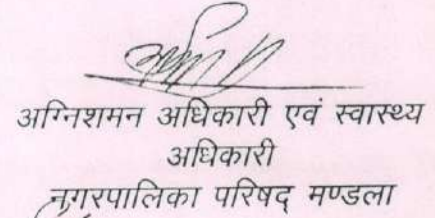 अग्निशमन अधिकारी एवं स्वास्थ्य
अधिकारी
नगरपालिका परिषद मण्डला